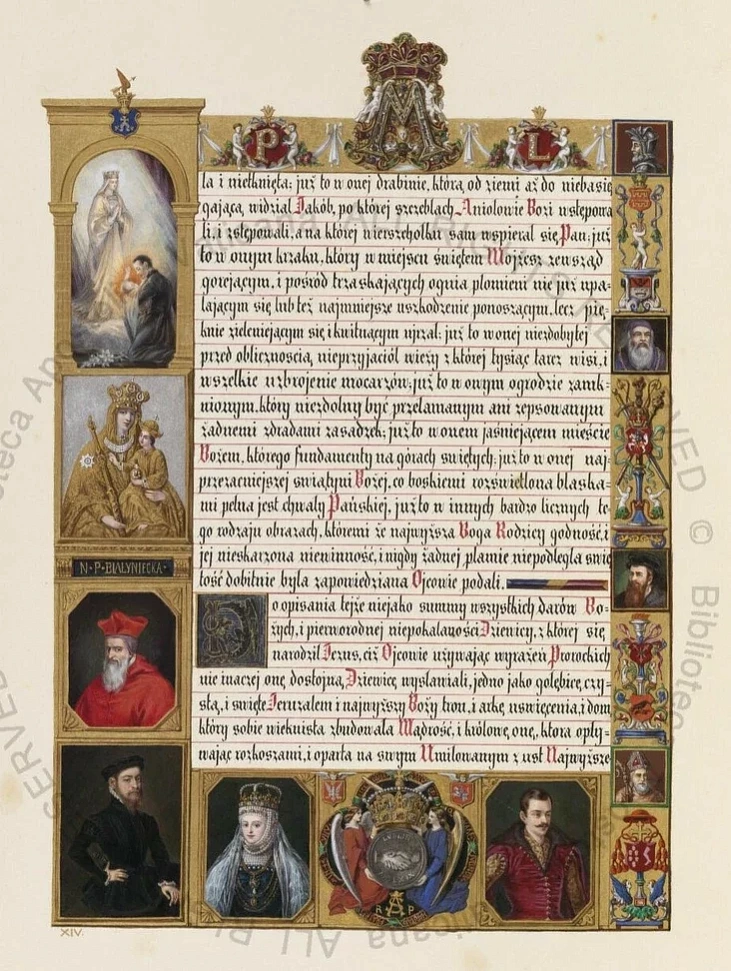 P
M
L
ła i nietknięta: już to w onej drabinie, która od ziemi aż do nieba się
gająca, widział Jakób, po której szczeblach Aniołowie Boży wstępowa
li, i zstępowali, a na której wierzchołku sam wspierał się Pan: już
to w onym krzaku, który w miejscu świętem Mojżesz zewsząd
gorejącym, i pośród trzaskających ognia płomieni nie już upa-
lającym się lub też najmniejsze uszkodzenie ponoszącym, lecz pię-
knie zieleniejącym się i kwitnącym ujrzał: już to w onej niezdobytej
przed obliczności nieprzyjaciół wieży z której tysiąc tarcz wisi, i
wszelkie uzbrojenie mocarzów: już to w owym ogrodzie zamk-
nionym, który niezdolny być przełamanym ani zepsowanym
żadnemi zdradami zasadzek: już to w onem jaśniejącem mieście
Bożem, którego fundamenty na górach świętych: już to w onej naj-
przezacniejszej świątyni Bożej, co boskiemi rozświetlona blaska-
mi pełna jest chwały Pańskiej, już to w innych bardzo licznych te-
go rodzaju obrazach, któremi że najwyższa Boga Rodzicy godność, i
jej nieskażona niewinność, i nigdy żadnej plamie niepodległa świę
tość dobitnie była zapowiedziana Ojcowie podali.
N·P·BIAŁYNIECKA·
Do opisania tejże niejako summy wszystkich darów Bo-
żych, i pierworodnej niepokalaności Dziewicy, z której się
narodził Jezus, ciż Ojcowie używając wyrażeń Prorockich
nie inaczej onę dostojną Dziewicę wysławiali, jedno jako gołębicę czy-
stą, i święte Jeruzalem i najwyższy Boży tron, i arkę uświęcenia, i dom
który sobie wiekuista zbudowała Mądrość, i królowę onę, która opły-
wając rozkoszami, i oparta na swym Umiłowanym z ust Najwyższe
R A P
XIV.
Biblioteca Apostolica Vaticana ALL RIGHTS RESERVED ©